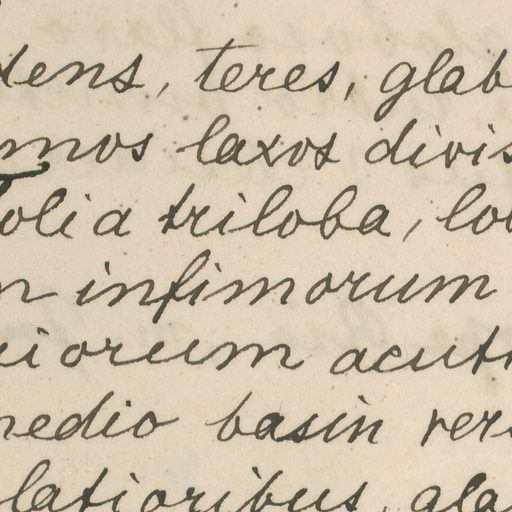 tens, teres, glab
mos laxos divis
olia triloba, lob
n infimorum
iorum acuti
medio basin vers
latioribus, gla